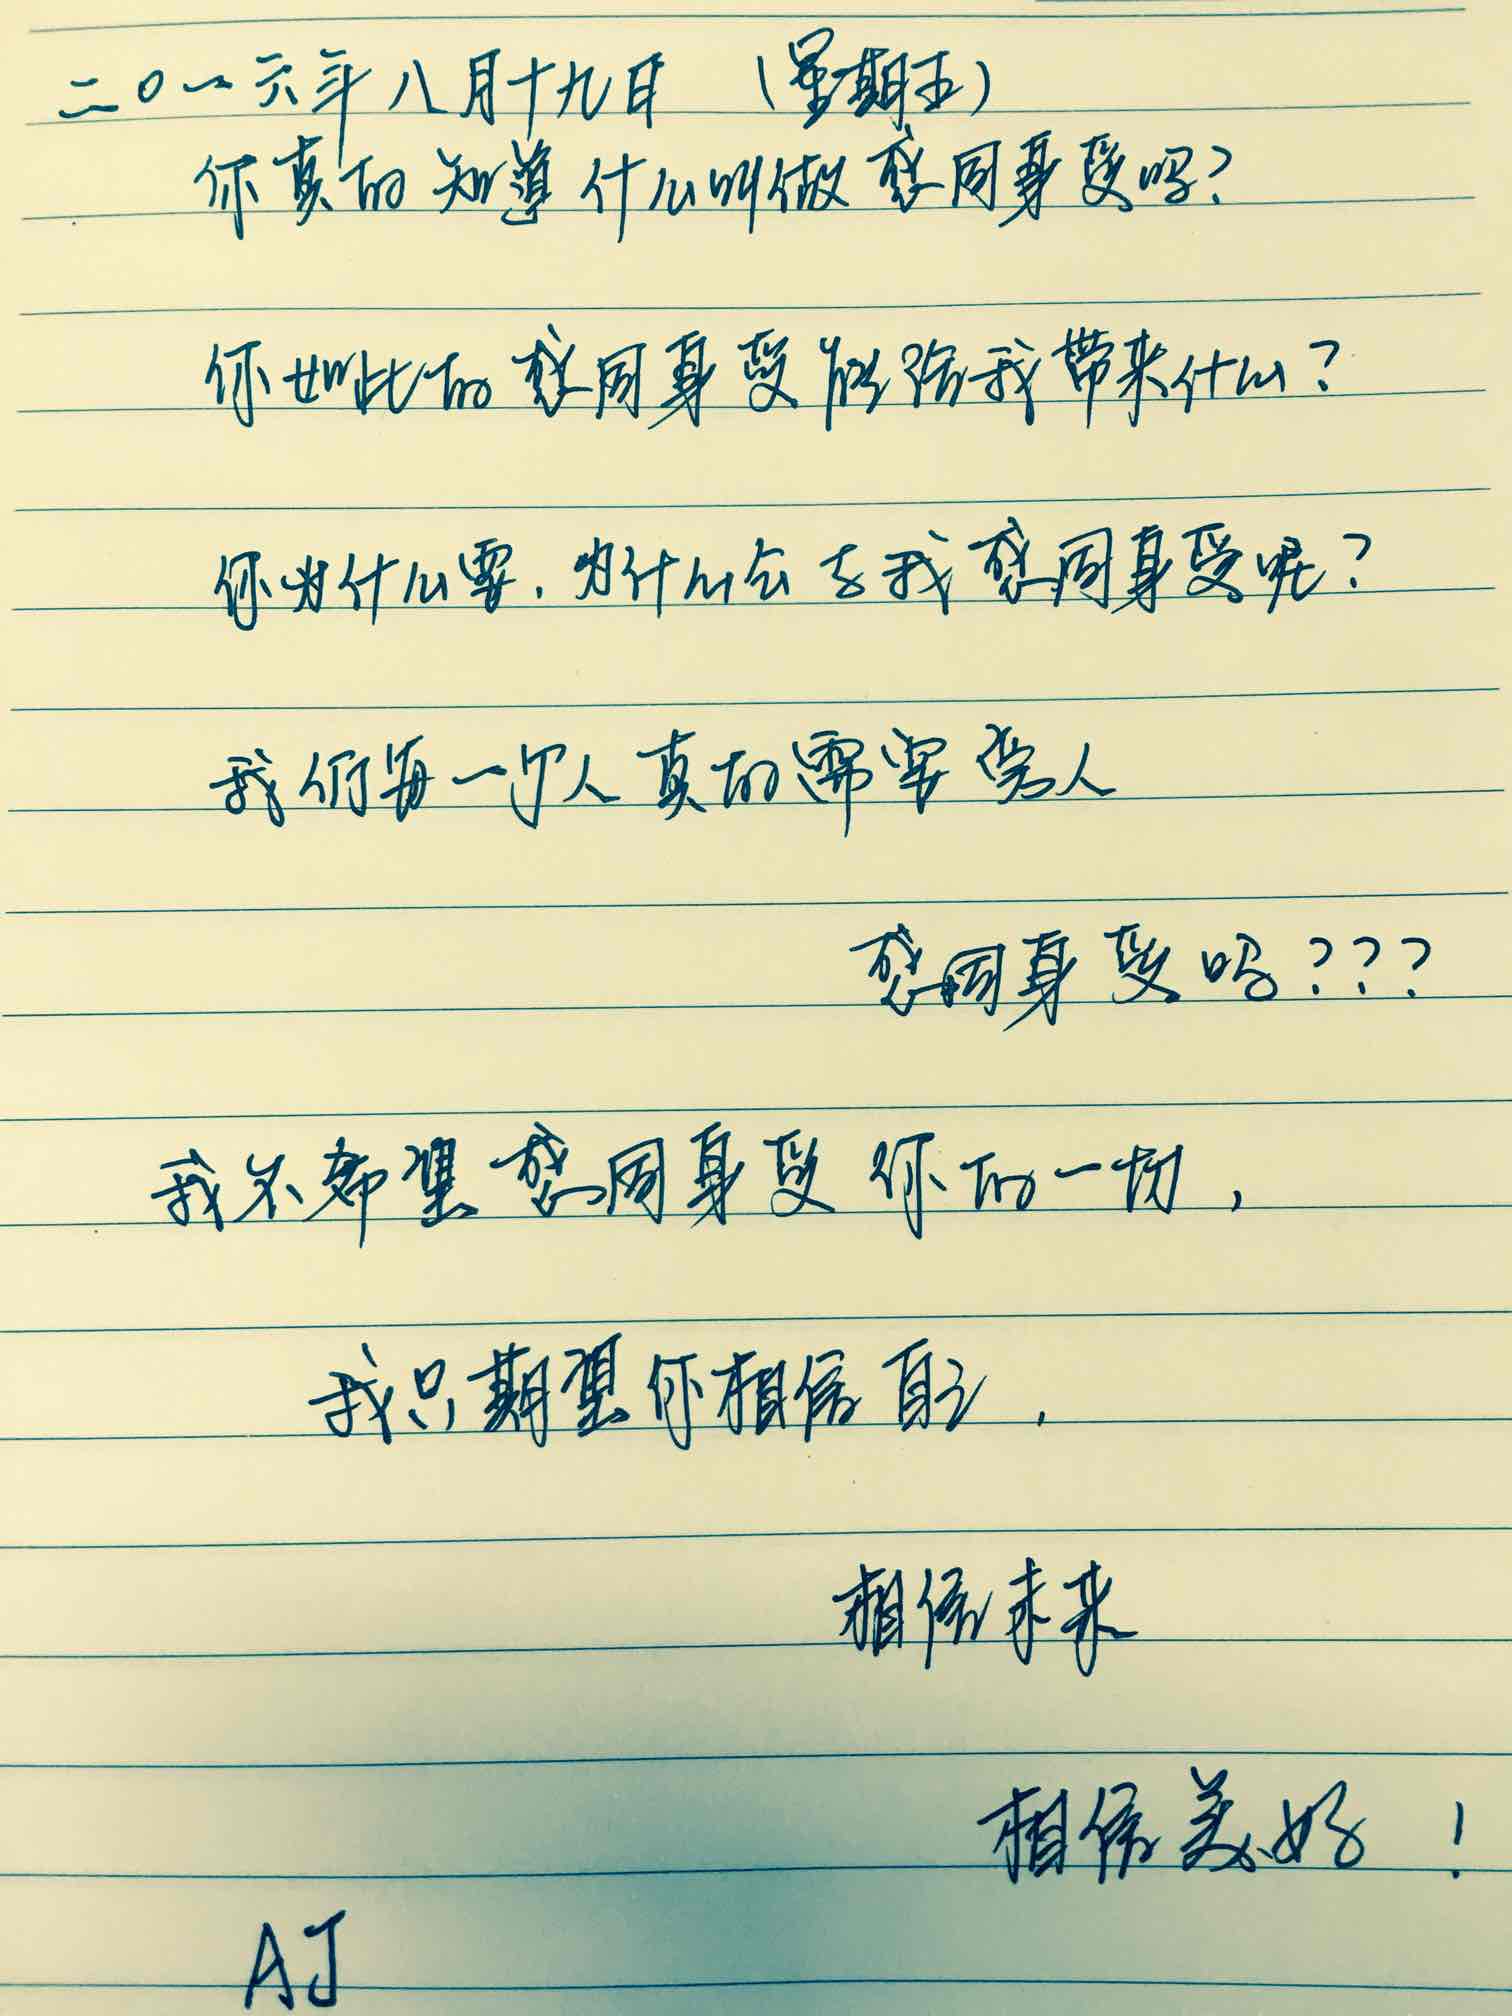 二〇一六年八月十九日 (星期五)
你真的知道什么叫做感同身受吗?
你如此的感同身受能给我带来什么?
你为什么要,为什么会去我感同身受呢?
我们每一个人真的需要旁人
感同身受吗???
我不希望感同身受你的一切,
我只期望你相信自己,
相信未来
相信美好!
AJ